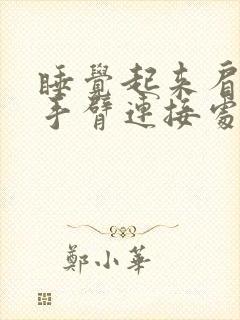 睡覺起來肩
手臂連接處
鄭小華